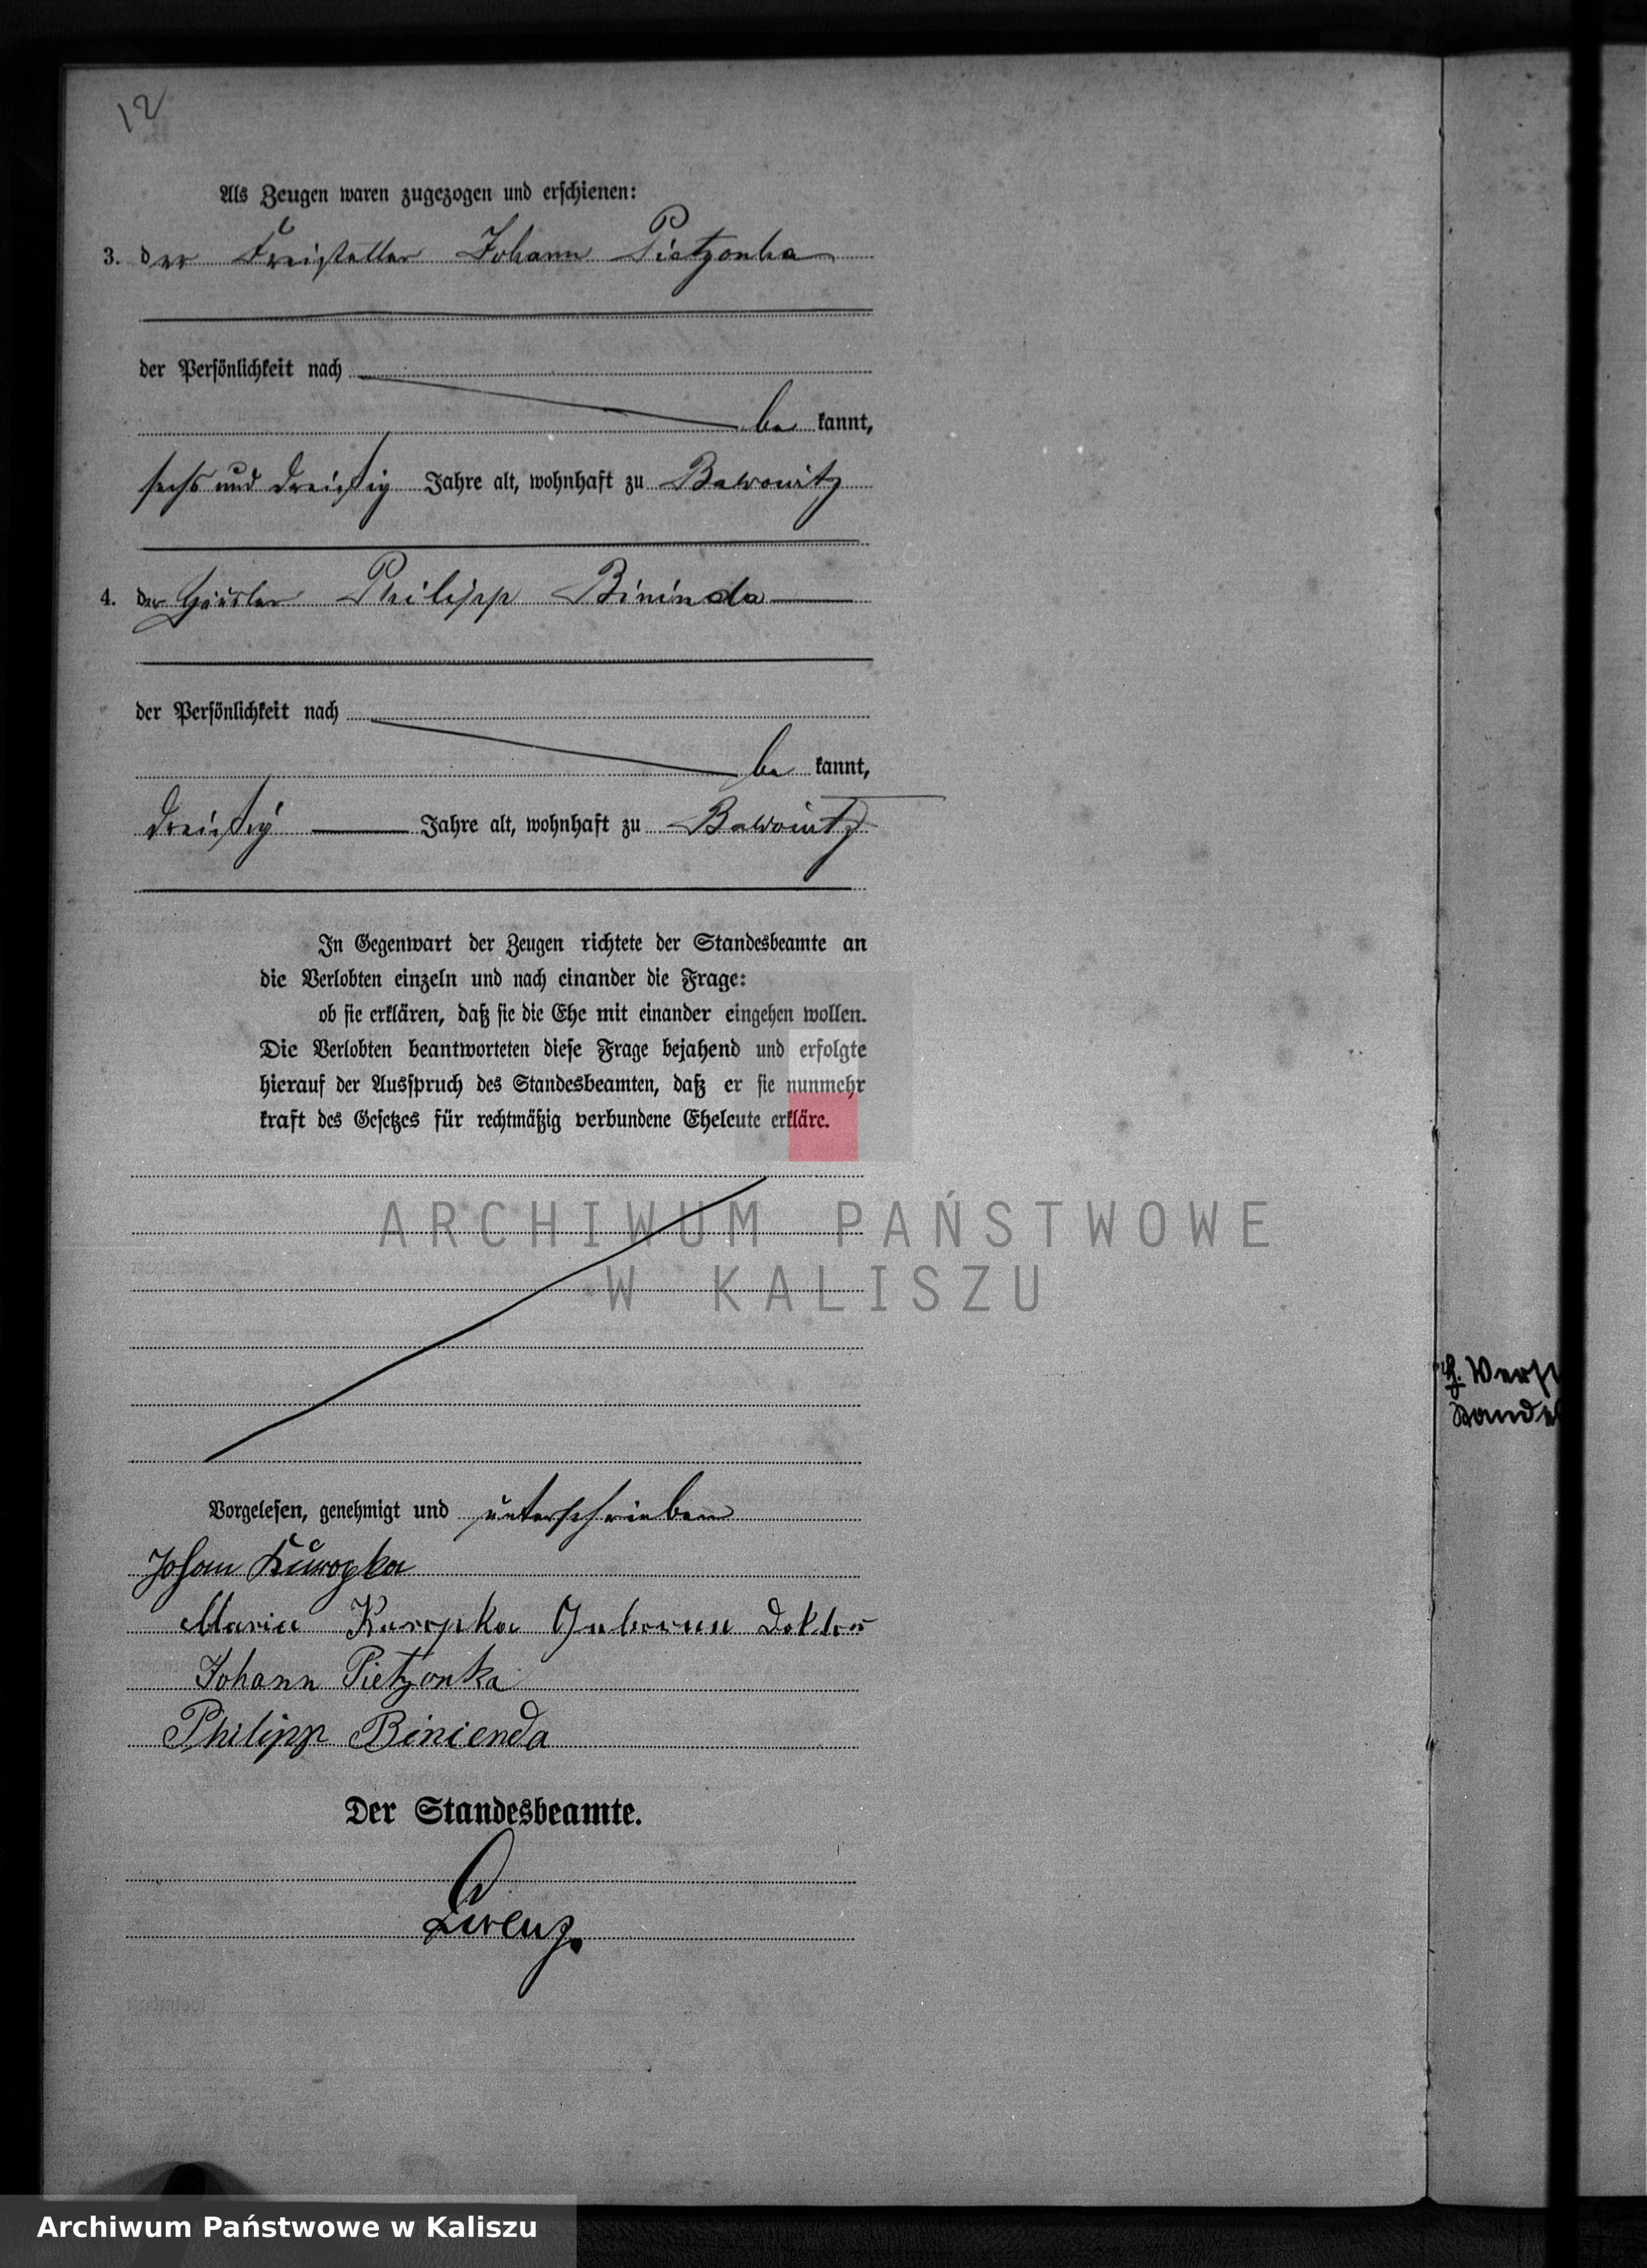 12
Als Zeugen waren zugezogen und erschienen:
3. der Freisteller Johann Pietzonka
der Persönlichkeit nach
be kannt,
sechs und dreißig Jahre alt, wohnhaft zu Bawonitz
4. der Häusler Philipp Bininda
der Persönlichkeit nach
be kannt,
dreißig Jahre alt, wohnhaft zu
In Gegenwart der Zeugen richtete der Standesbeamte an
die Verlobten einzeln und nach einander die Frage:
ob sie erklären, daß sie die Ehe mit einander eingehen wollen.
Die Verlobten beantworteten diese Frage bejahend und erfolgte
hierauf der Ausspruch des Standesbeamten, daß er sie nunmehr
kraft des Gesetzes für rechtmäßig verbundene Eheleute erkläre.
ARCHIWUM PAŃSTWOWE
W KALISZU
Vorgelesen, genehmigt und unterschrieben
Johan Kuropka
Maria Kuropka Geborene
Johann Pietzonka
Philipp Binienda
Der Standesbeamte.
Lorenz.
Archiwum Państwowe w Kaliszu